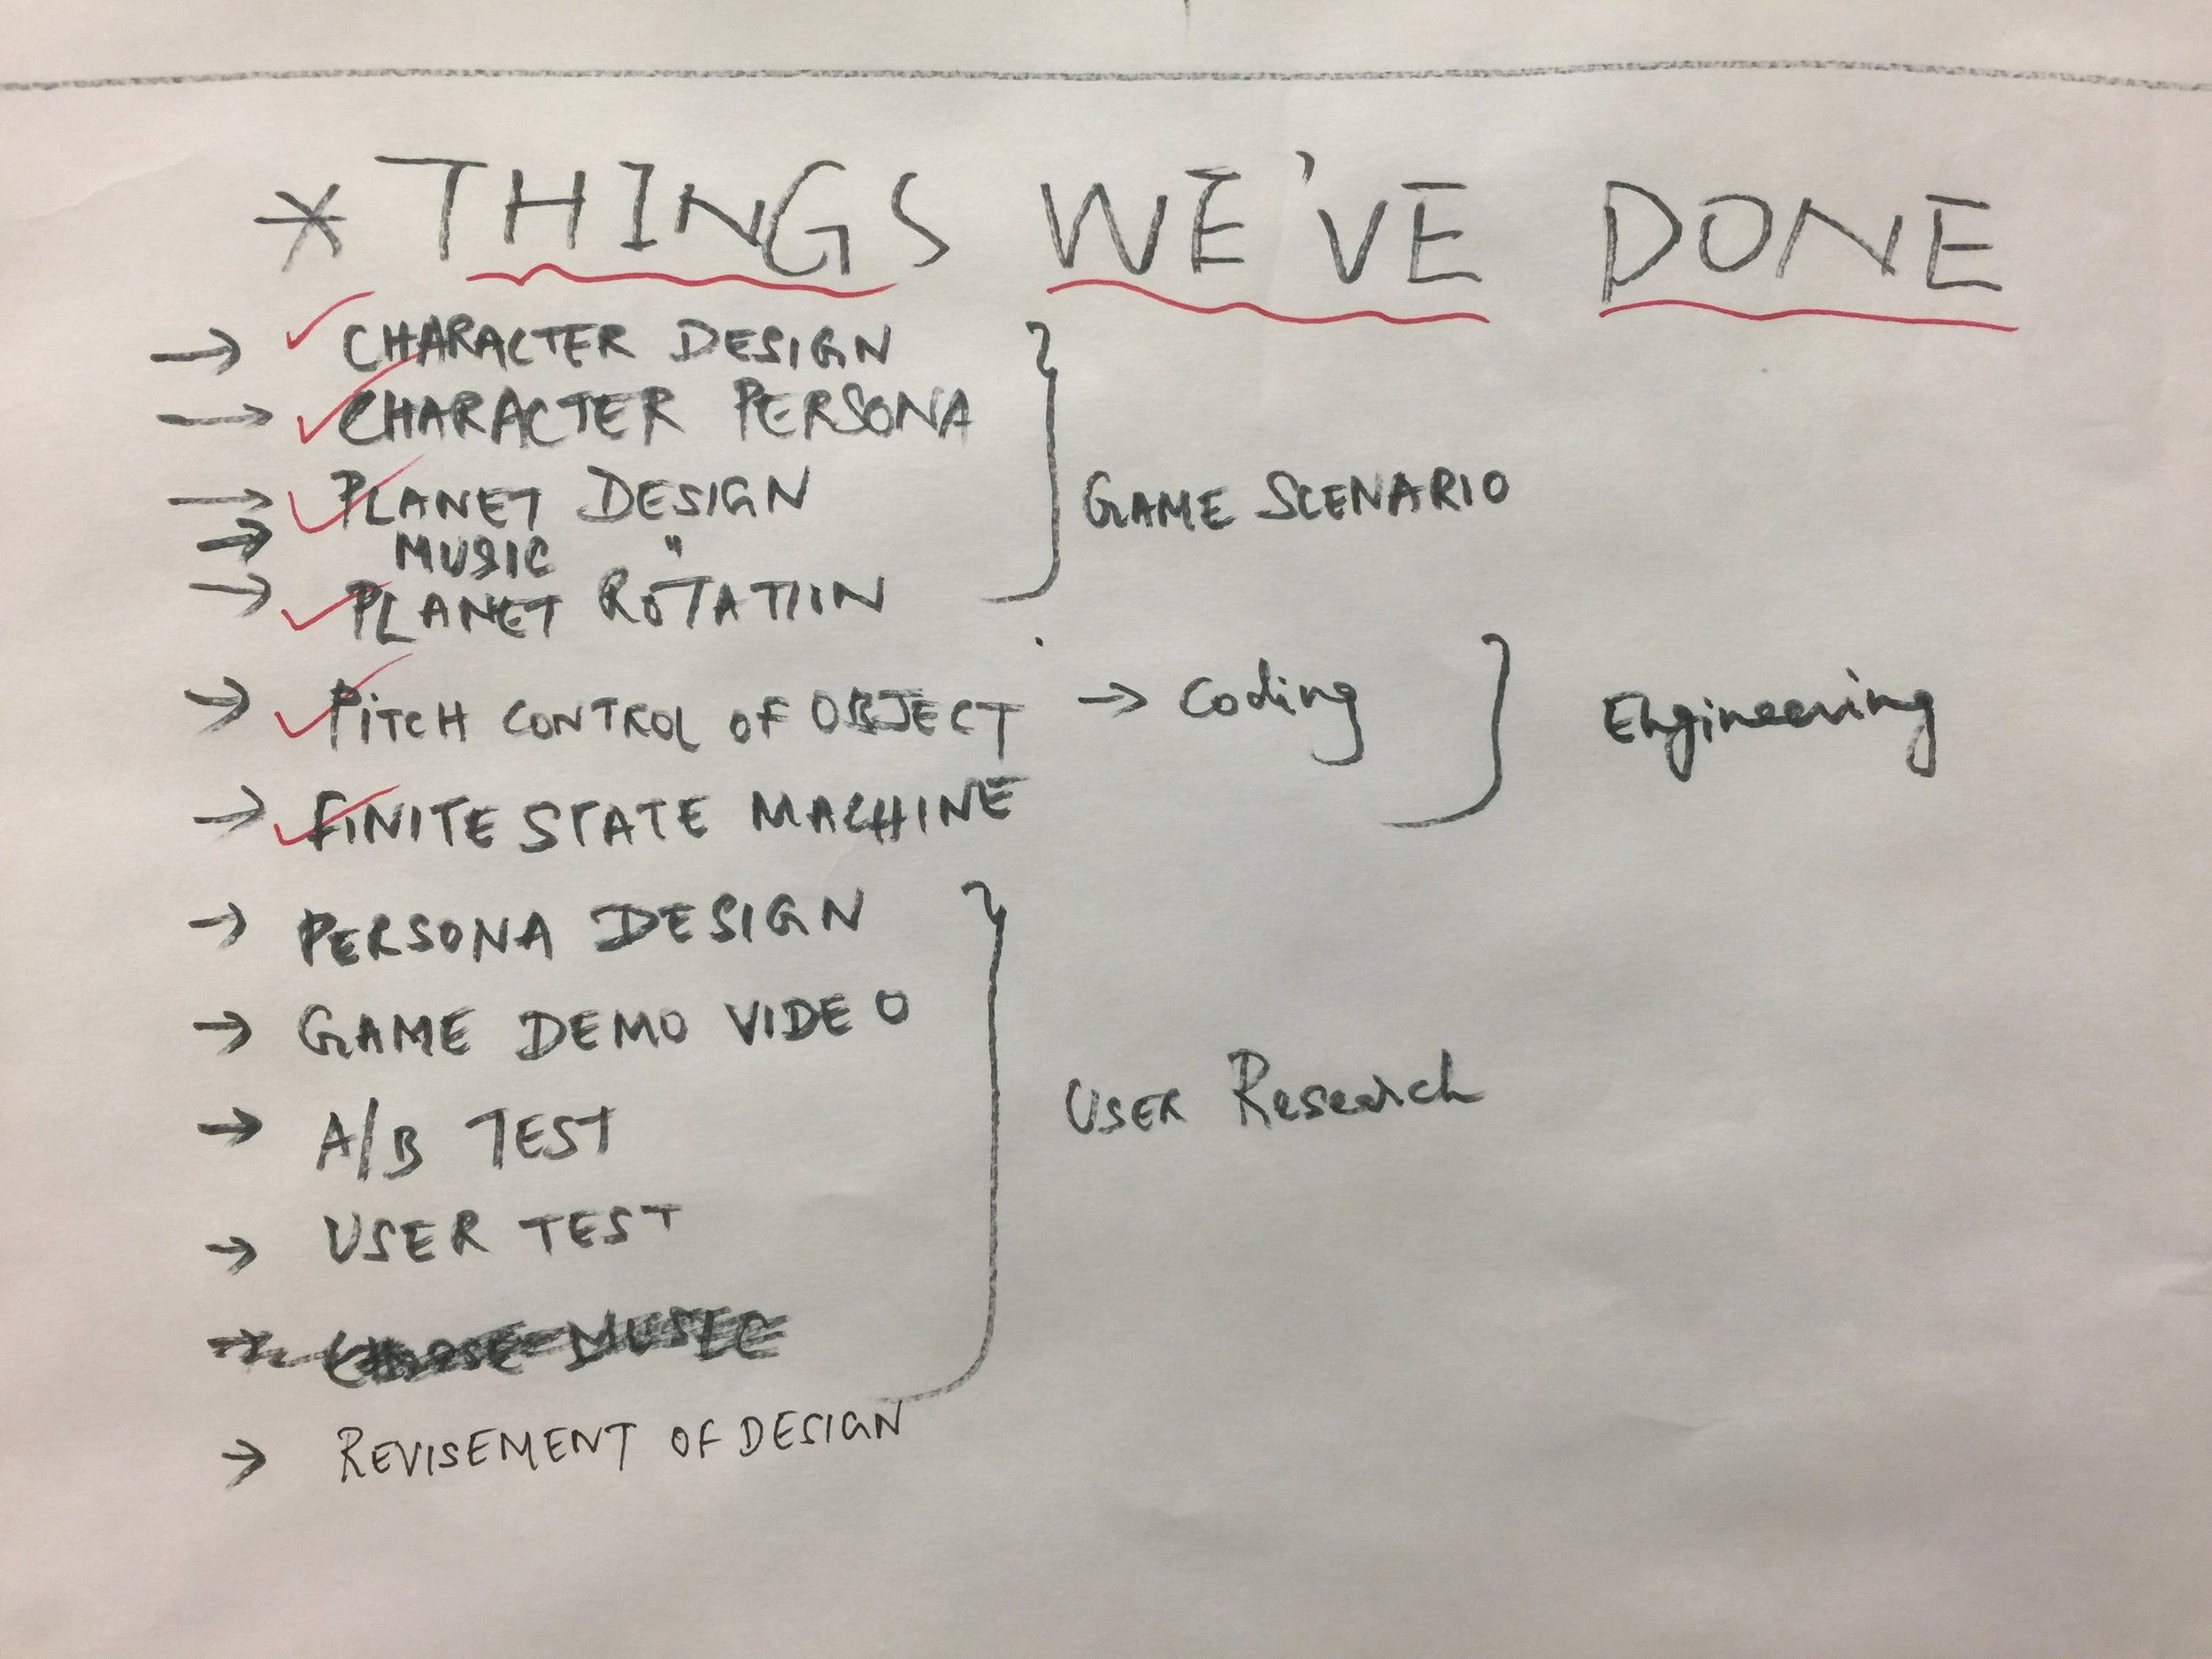 * THINGS WE'VE DONE
→ ✓ CHARACTER DESIGN
→ ✓ CHARACTER PERSONA
→ ✓ PLANET DESIGN
→ MUSIC "
→ ✓ PLANET ROTATION
GAME SCENARIO
→ ✓ PITCH CONTROL OF OBJECT → Coding
Engineering
→ ✓ FINITE STATE MACHINE
→ PERSONA DESIGN
→ GAME DEMO VIDEO
→ A/B TEST
USER Research
→ USER TEST
→ CHOOSE MUSIC
→ REVISEMENT OF DESIGN